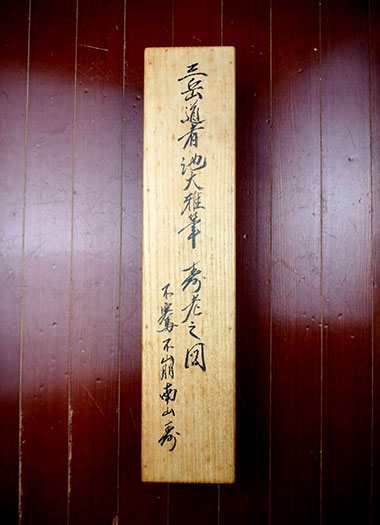 三岳道者池大雅筆 寿老之図
不騫不崩南山寿